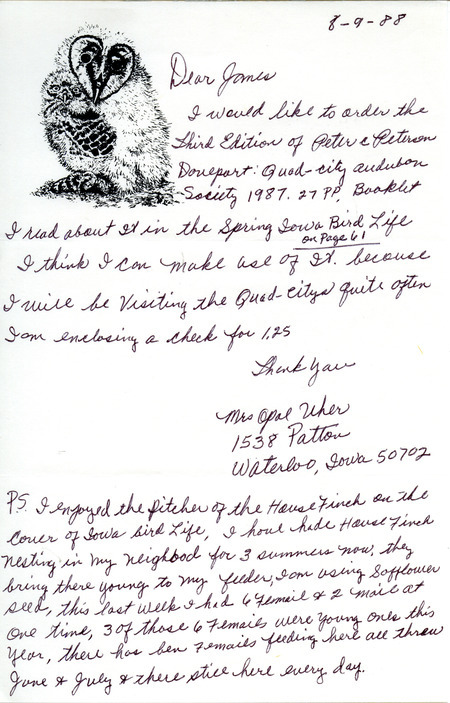 8-9-88
Dear James
I would like to order the
Third Edition of Peter C Petersen
Doneport: Quad-city audubon
Society 1987. 27 PP, Booklet
I read about It in the Spring Iowa Bird Life
on Page 61
I think I can make use of It. because
I will be Visiting the Quad-Citys quite often
I am enclosing a check for 1.25
Thank You
Mrs Opal Uher
1538 Patton
Waterloo, Iowa 50702
P.S. I enjoyed the Pitcher of the House Finch on the
Cover of Iowa bird Life, I have hade House Finch
nesting in my neighbood for 3 summers now, they
bring there young to my feeder, I am using Safflower
seed, this last week I had 6 Femail & 2 mail at
One time, 3 of those 6 Femails were young ones this
Year, there has ben Femails feeding here all threw
June & July & there still here every day.